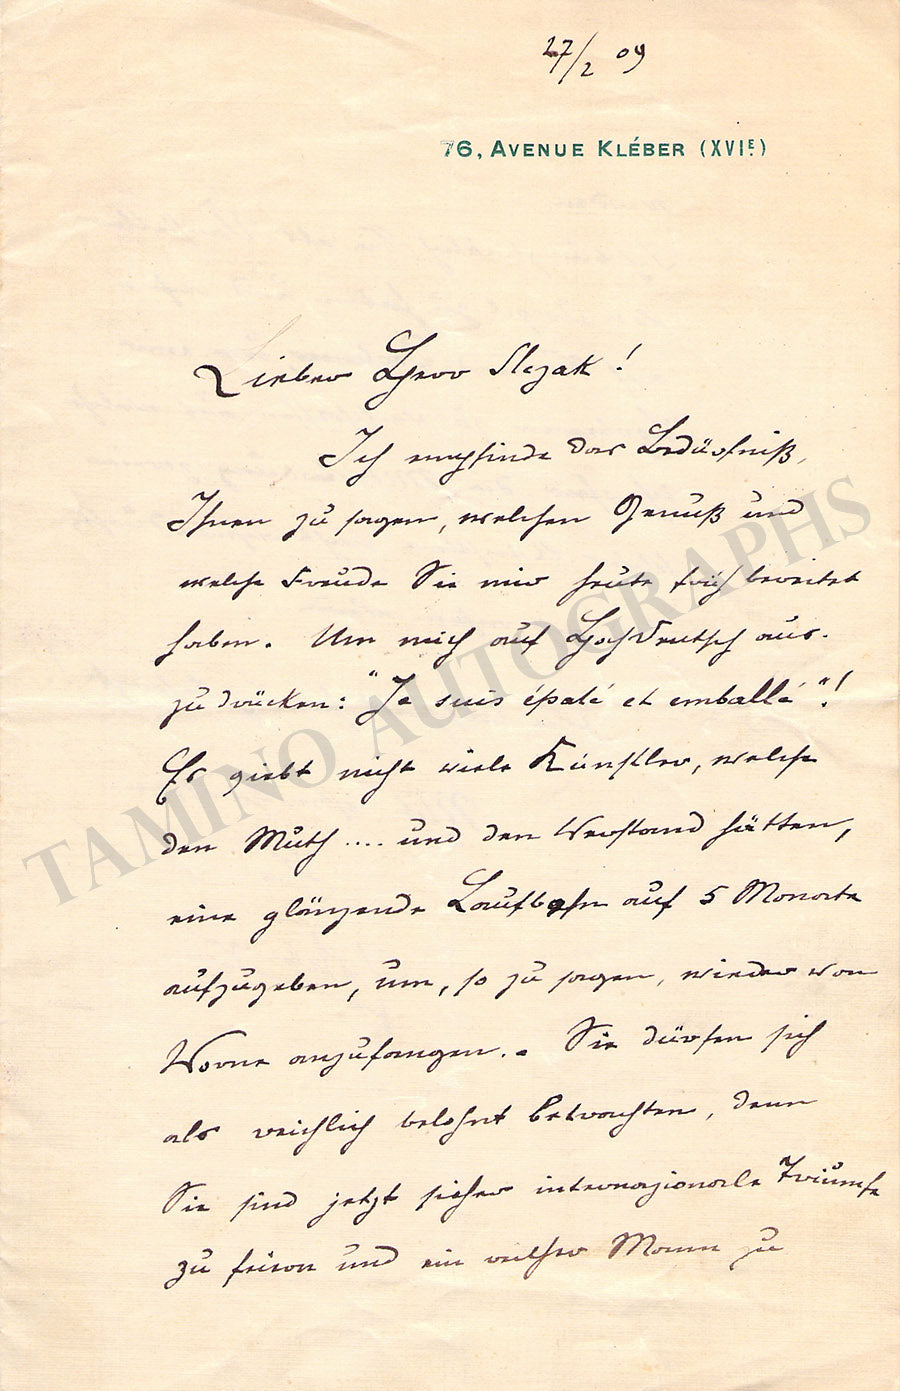 27/2 09
76, AVENUE KLÉBER (XVIE.)
Lieber Herr Slezak!
Ich empfinde das Bedürfniß,
Ihnen zu sagen, welchen Genuß und
welche Freude Sie mir heute früh bereitet
haben. Um mich auf Hochdeutsch aus-
zudrücken: "Je suis épaté et emballé"!
Es giebt nicht viele Künstler, welche
den Muth .... und den Verstand hätten,
eine glänzende Laufbahn auf 5 Monate
aufzugeben, um, so zu sagen, wieder von
Vorne anzufangen. - Sie dürfen sich
als reichlich belohnt betrachten, denn
Sie sind jetzt sicher internazionale Triumfe
zu feiern und ein reicher Mann zu
TAMINO AUTOGRAPHS